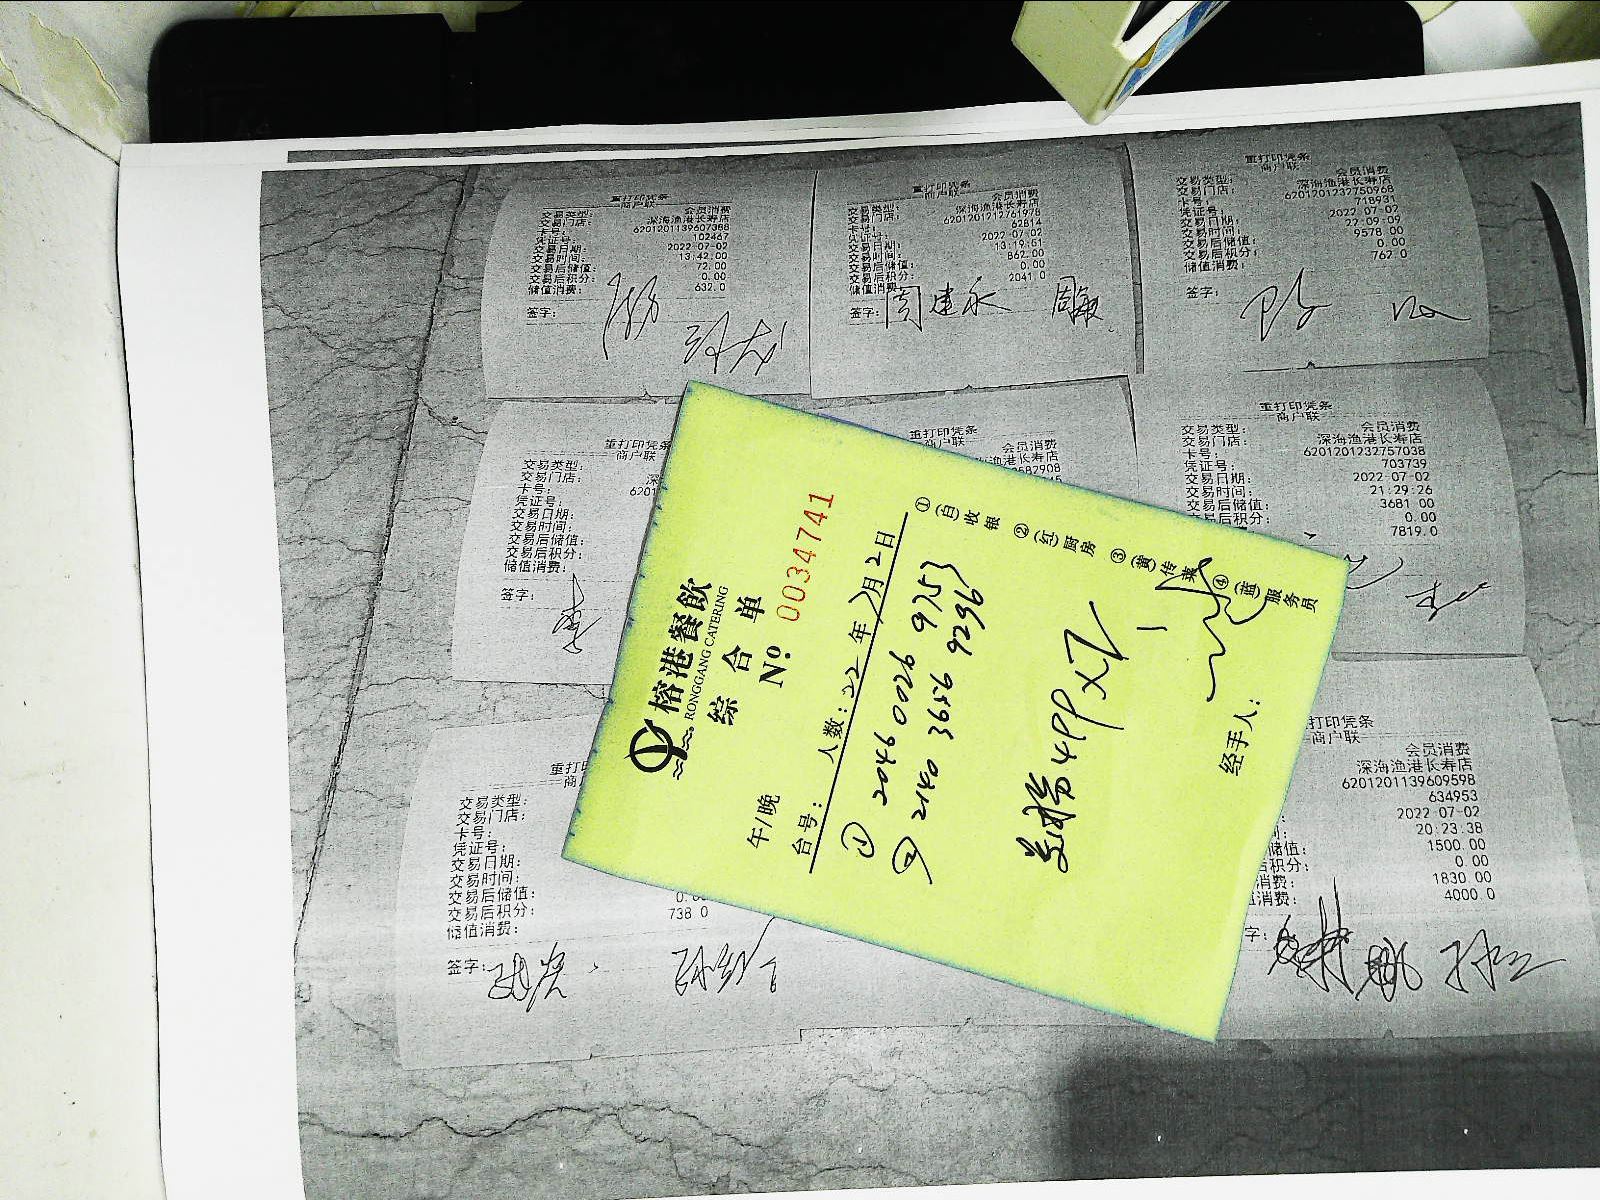 重打印凭条
商户联
交易类型: 会员消费
交易门店: 深海渔港长寿店
卡号: 6201201139607388
凭证号: 102467
交易日期: 2022-07-02
交易时间: 13:42:00
交易后储值: 72.00
交易后积分: 0.00
储值消费: 632.0
签字:
重打印凭条
商户联
交易类型: 会员消费
交易门店: 深海渔港长寿店
卡号: 6201201212761978
凭证号: 62814
交易日期: 2022-07-02
交易时间: 13:19:51
交易后储值: 862.00
交易后积分: 0.00
储值消费: 2041.0
签字: 周建永
重打印凭条
商户联
交易类型: 会员消费
交易门店: 深海渔港长寿店
卡号: 6201201232750968
凭证号: 718931
交易日期: 2022-07-02
交易时间: 22:09:09
交易后储值: 9578.00
交易后积分: 0.00
储值消费: 762.0
签字:
重打印凭条
商户联
交易类型:
交易门店: 深
卡号: 6201
凭证号:
交易日期:
交易时间:
交易后储值:
交易后积分:
储值消费:
签字:
重打印凭条
商户联
会员消费
海渔港长寿店
582908
重打印凭条
商户联
交易类型: 会员消费
交易门店: 深海渔港长寿店
卡号: 6201201232757038
凭证号: 703739
交易日期: 2022-07-02
交易时间: 21:29:26
交易后储值: 3681.00
交易后积分: 0.00
7819.0
榕港餐飲
RONGGANG CATERING
综合单
No. 0034741
午/晚
台号: 人数: 22年7月2日
① 2046 0026 9753
② 2140 3656 9296
经手人:
①(白)收银 ②(红)厨房 ③(黄)传菜 ④(蓝)服务员
重打
商
交易类型:
交易门店:
卡号:
凭证号:
交易日期:
交易时间:
交易后储值:
交易后积分: 738.0
储值消费:
签字:
打印凭条
商户联
会员消费
深海渔港长寿店
6201201139609598
634953
2022-07-02
20:23:38
储值: 1500.00
积分: 0.00
消费: 1830.00
值消费: 4000.0
字: